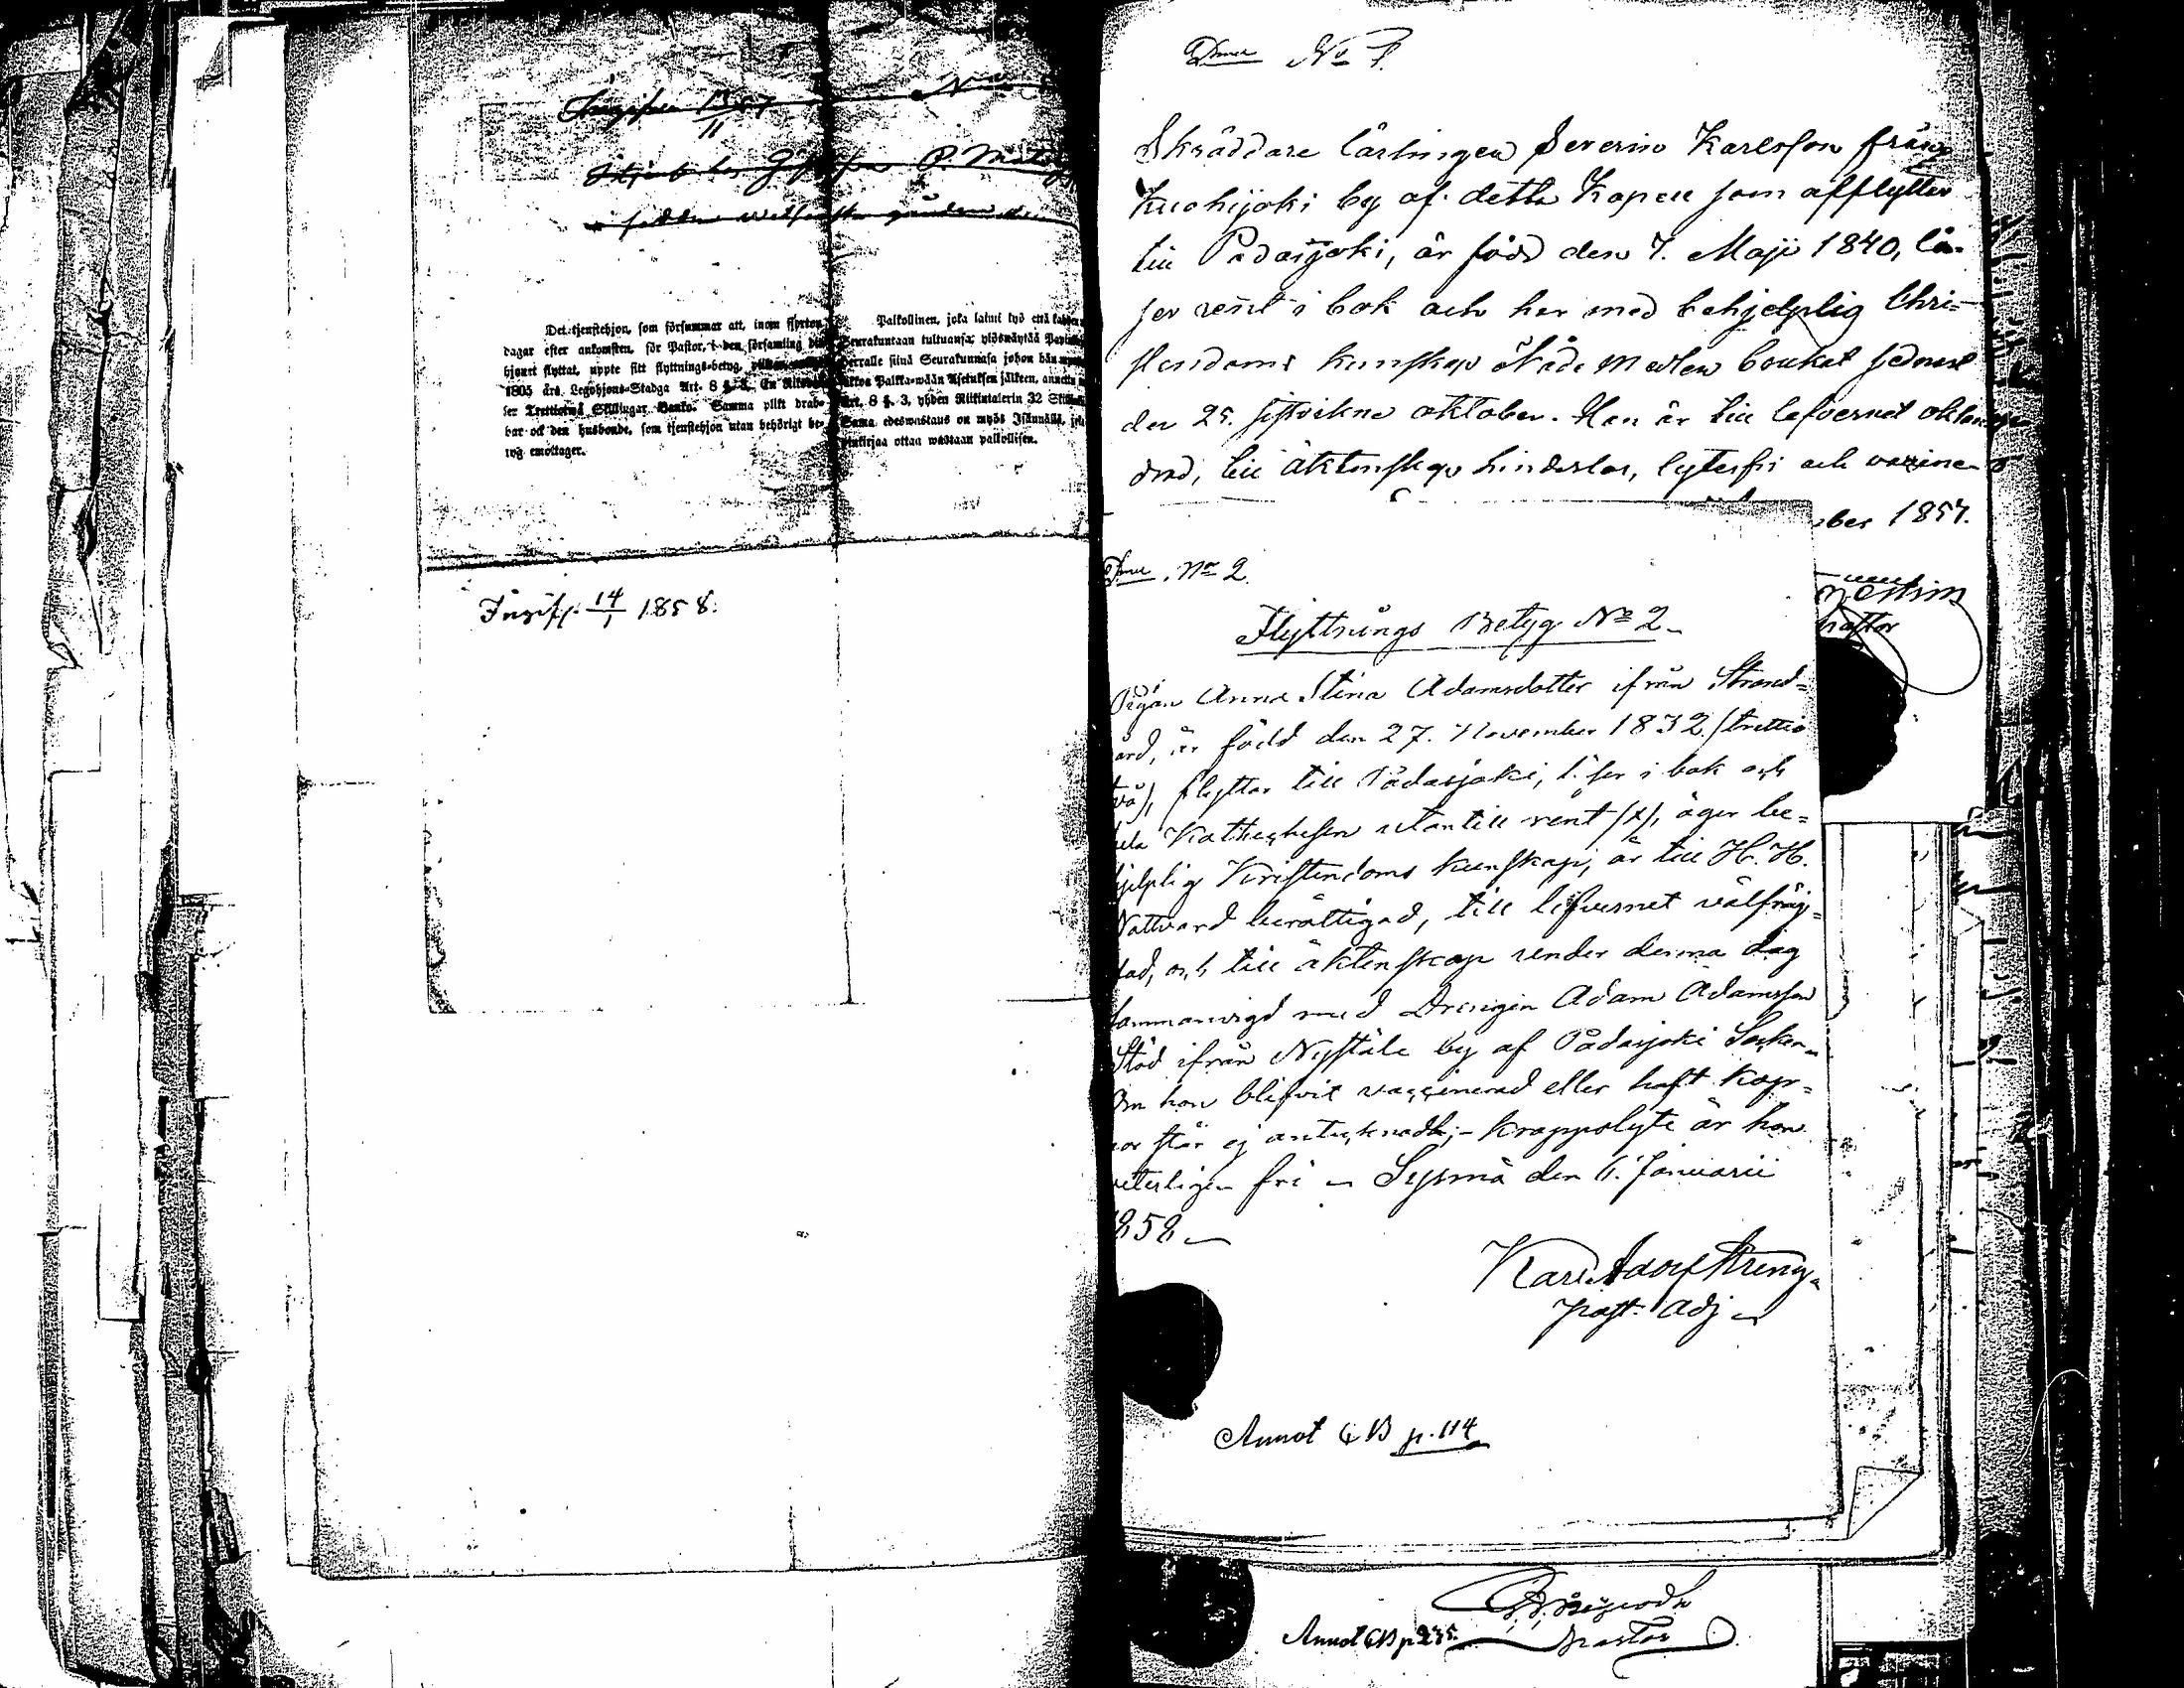 Det tjenstehjon, som försummar att, inom fjorton
dagar efter ankomsten, för Pastor, i den församling dit
hjonet flyttat, uppte sitt flyttnings-betyg,
1805 års Legohjons-Stadga Art. 8 §. 3. En Riksda-
ler Trettiotvå Skillingar Banko. Samma plikt drab-
bar ock den husbonde, som tjenstehjon utan behörigt be-
tyg emottager.
Palkollinen, joka laimi lyö että
Seurakuntaan tultuansa, ylöswäytää
Herralle siinä Seurakunnasa johon hän
Palkka-wään Asetuksen jälkeen,
Art. 8 §. 3, yhden Riikintalerin 32
Sama edeswastaus on myös Isännällä,
pinkirjaa ottaa wastaan palkollisen.
Ingifv. 14/1 1858.
Dnus No 7.
Skräddare lärlingen Severin Karlsson från
Kuohijoki by af detta Kapell som afflyttar
till Padasjoki, är född den 7. Maji 1840, lä-
ser rent i bok och har med behjelplig Chri-
stendoms kunskap
den 25. sistvikne oktober. Han är till lefvernet oklan
drad, till äktenskap hinderlös, lytesfri och vaccine-
ber 1857.
Dnus. No 2.
Flyttnings Betyg No 2
Pigan Anna Stina Adamsdotter ifrån Strand=
ård, är född den 27. November 1832 (trettio
två), flyttar till Pådasjoki, läser i bok och
hela Kathechesen utantill rent (x), äger be=
hjelplig Kristendoms kunskap, är till H. H.
Nattvard berättigad, till lefvernet välfräj=
dad, och till äktenskap under denna dag
sammanvigd med Drengen Adam Adamsson
Stöd ifrån Nystäle by af Pådasjoki Socken
Om hon blifvit vaccinerad eller haft kop=
por står ej antecknadt; - kroppslyte är hon
veterligen fri Sysmä den 6. Januarii
1858
Karl Adolf Streng
past. Adj
Annot CB p. 114
Annot CB p 235.
pastor